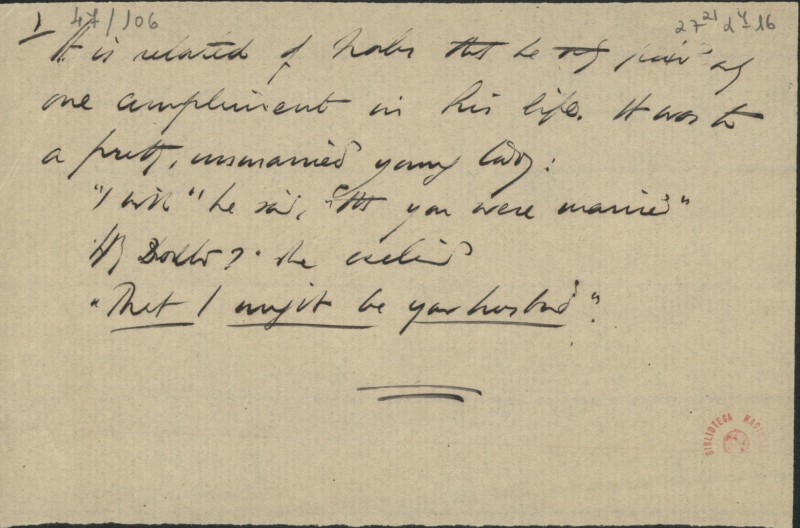 1 47/106
27 21 2 4 16
It is related of that he paid
one compliment in his life. It was to
a pretty, unmarried young lady:
"I wish" he said, "that you were married"
Why Doctor? she
"That I might be your husband".
BIBLIOTECA NACIONAL